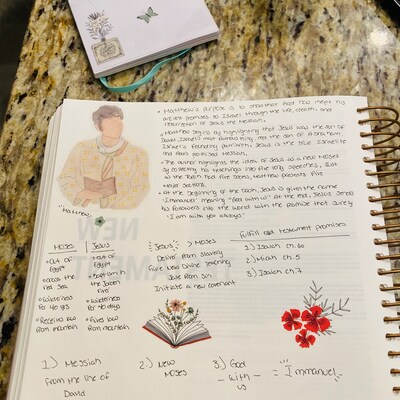 • Matthew's purpose is to show that God has kept his
ancient promises to Israel through the life, death, and
resurrection of Jesus the Messiah.
• Matthew begins by highlighting that Jesus was the son of
David, Israel's most and the son of Abraham
Israel's founding patriarch. Jesus is the true Israelite
and promised Messiah.
• The author highlights the idea of Jesus as a new Moses
by collecting his teachings into five long speeches, just
as the Torah had five books, Matthew presents five
Major sections.
• At the beginning of the book, Jesus is given the name
"Immanuel" meaning "God with us." At the end, Jesus sends
his followers into the world with the promise that surely
"I am with you always."
"Matthew"
Moses | Jesus
• Out of Egypt | • Out of Egypt
• cross the Red Sea | • Baptism in the Jordan River
• Wilderness for 40 yrs | • Wilderness for 40 days
• Receives law from mountain | • Gives law from mountain
Jesus > Moses
Deliver from slavery
Give New Divine Teaching
Save from sin
Initiate a new covenant
Fulfill old testament promises
1) Isaiah ch.60
2) Micah ch. 5
3) Isaiah ch. 7
1.) Messiah
from the line of
David
2.) New
Moses
3.) God
- with -
us
= "Immanuel"